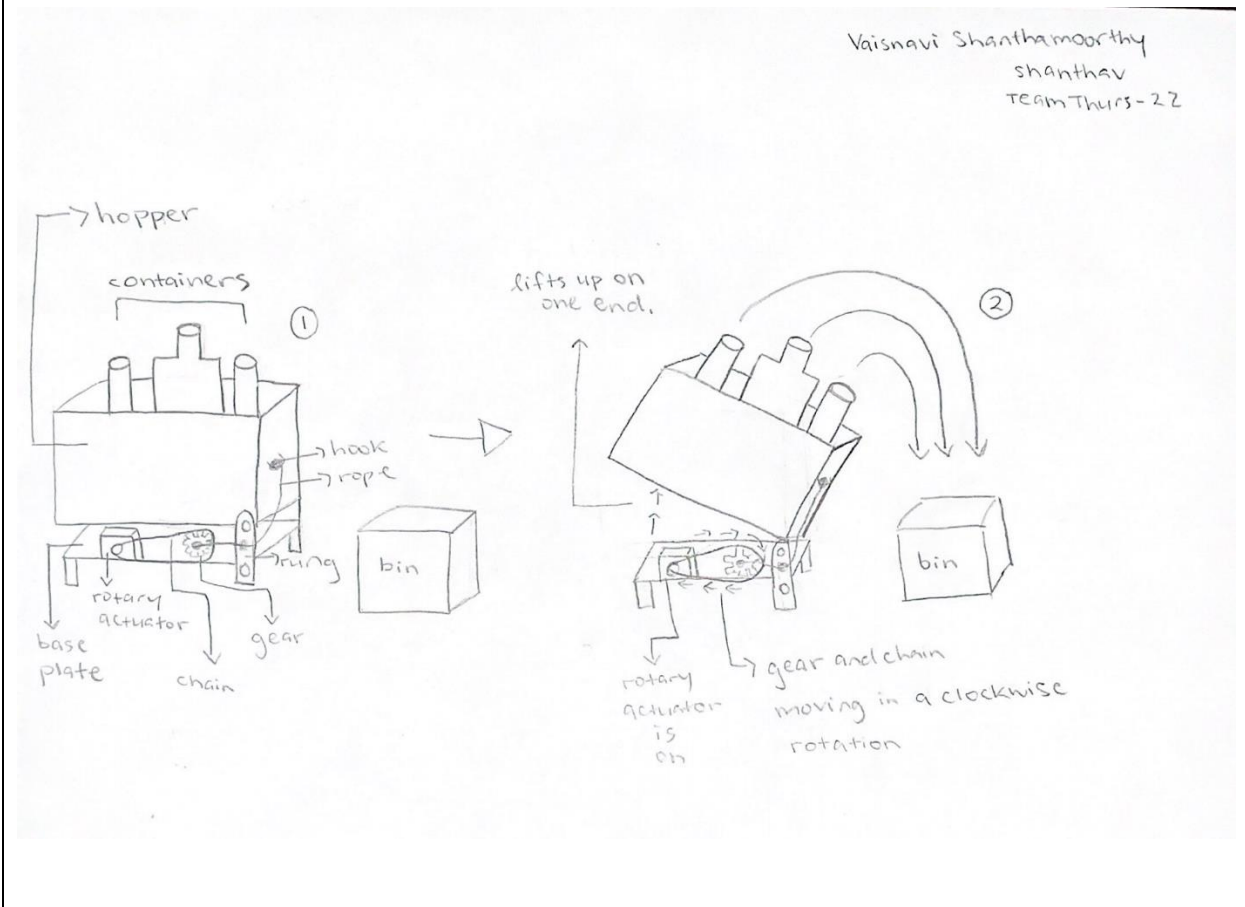 Vaisnavi Shanthamoorthy
shanthav
Team Thurs-22
hopper
containers
①
hook
rope
rung
bin
rotary
actuator
base
plate
chain
gear
lifts up on
one end.
②
bin
rotary
actuator
is
on
gear and chain
moving in a clockwise
rotation